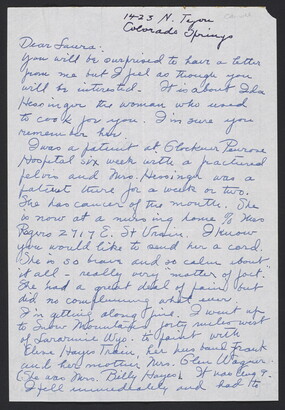 1423 N. Tejon
Colorado Springs
Dear Laura:
You will be surprised to have a letter
from me but I feel as though you
will be interested. It is about Ida
Hessinger the woman who used
to cook for you. I'm sure you
remember her.
I was a patient at Glockner Penrose
Hospital six week with a fractured
pelvis and Mrs. Hessinger was a
patient there for a week or two.
She has cancer of the mouth. She
is now at a nursing home % Mrs
Rogers 2717 E. St Vrain. I know
you would like to send her a card.
She is so brave and so calm about
it all - really very "matter of fact".
She had a great deal of pain but
did no complaining what ever.
I'm getting along fine. I went up
to Snow Mountains forty miles west
of Laramie Wyo. to paint with
Elene Hayes Train, her husband Frank
and her mother Mrs. Glen Wagner.
(She was Mrs. Billy Hayes) It was Aug 9.
I fell immediately and had to